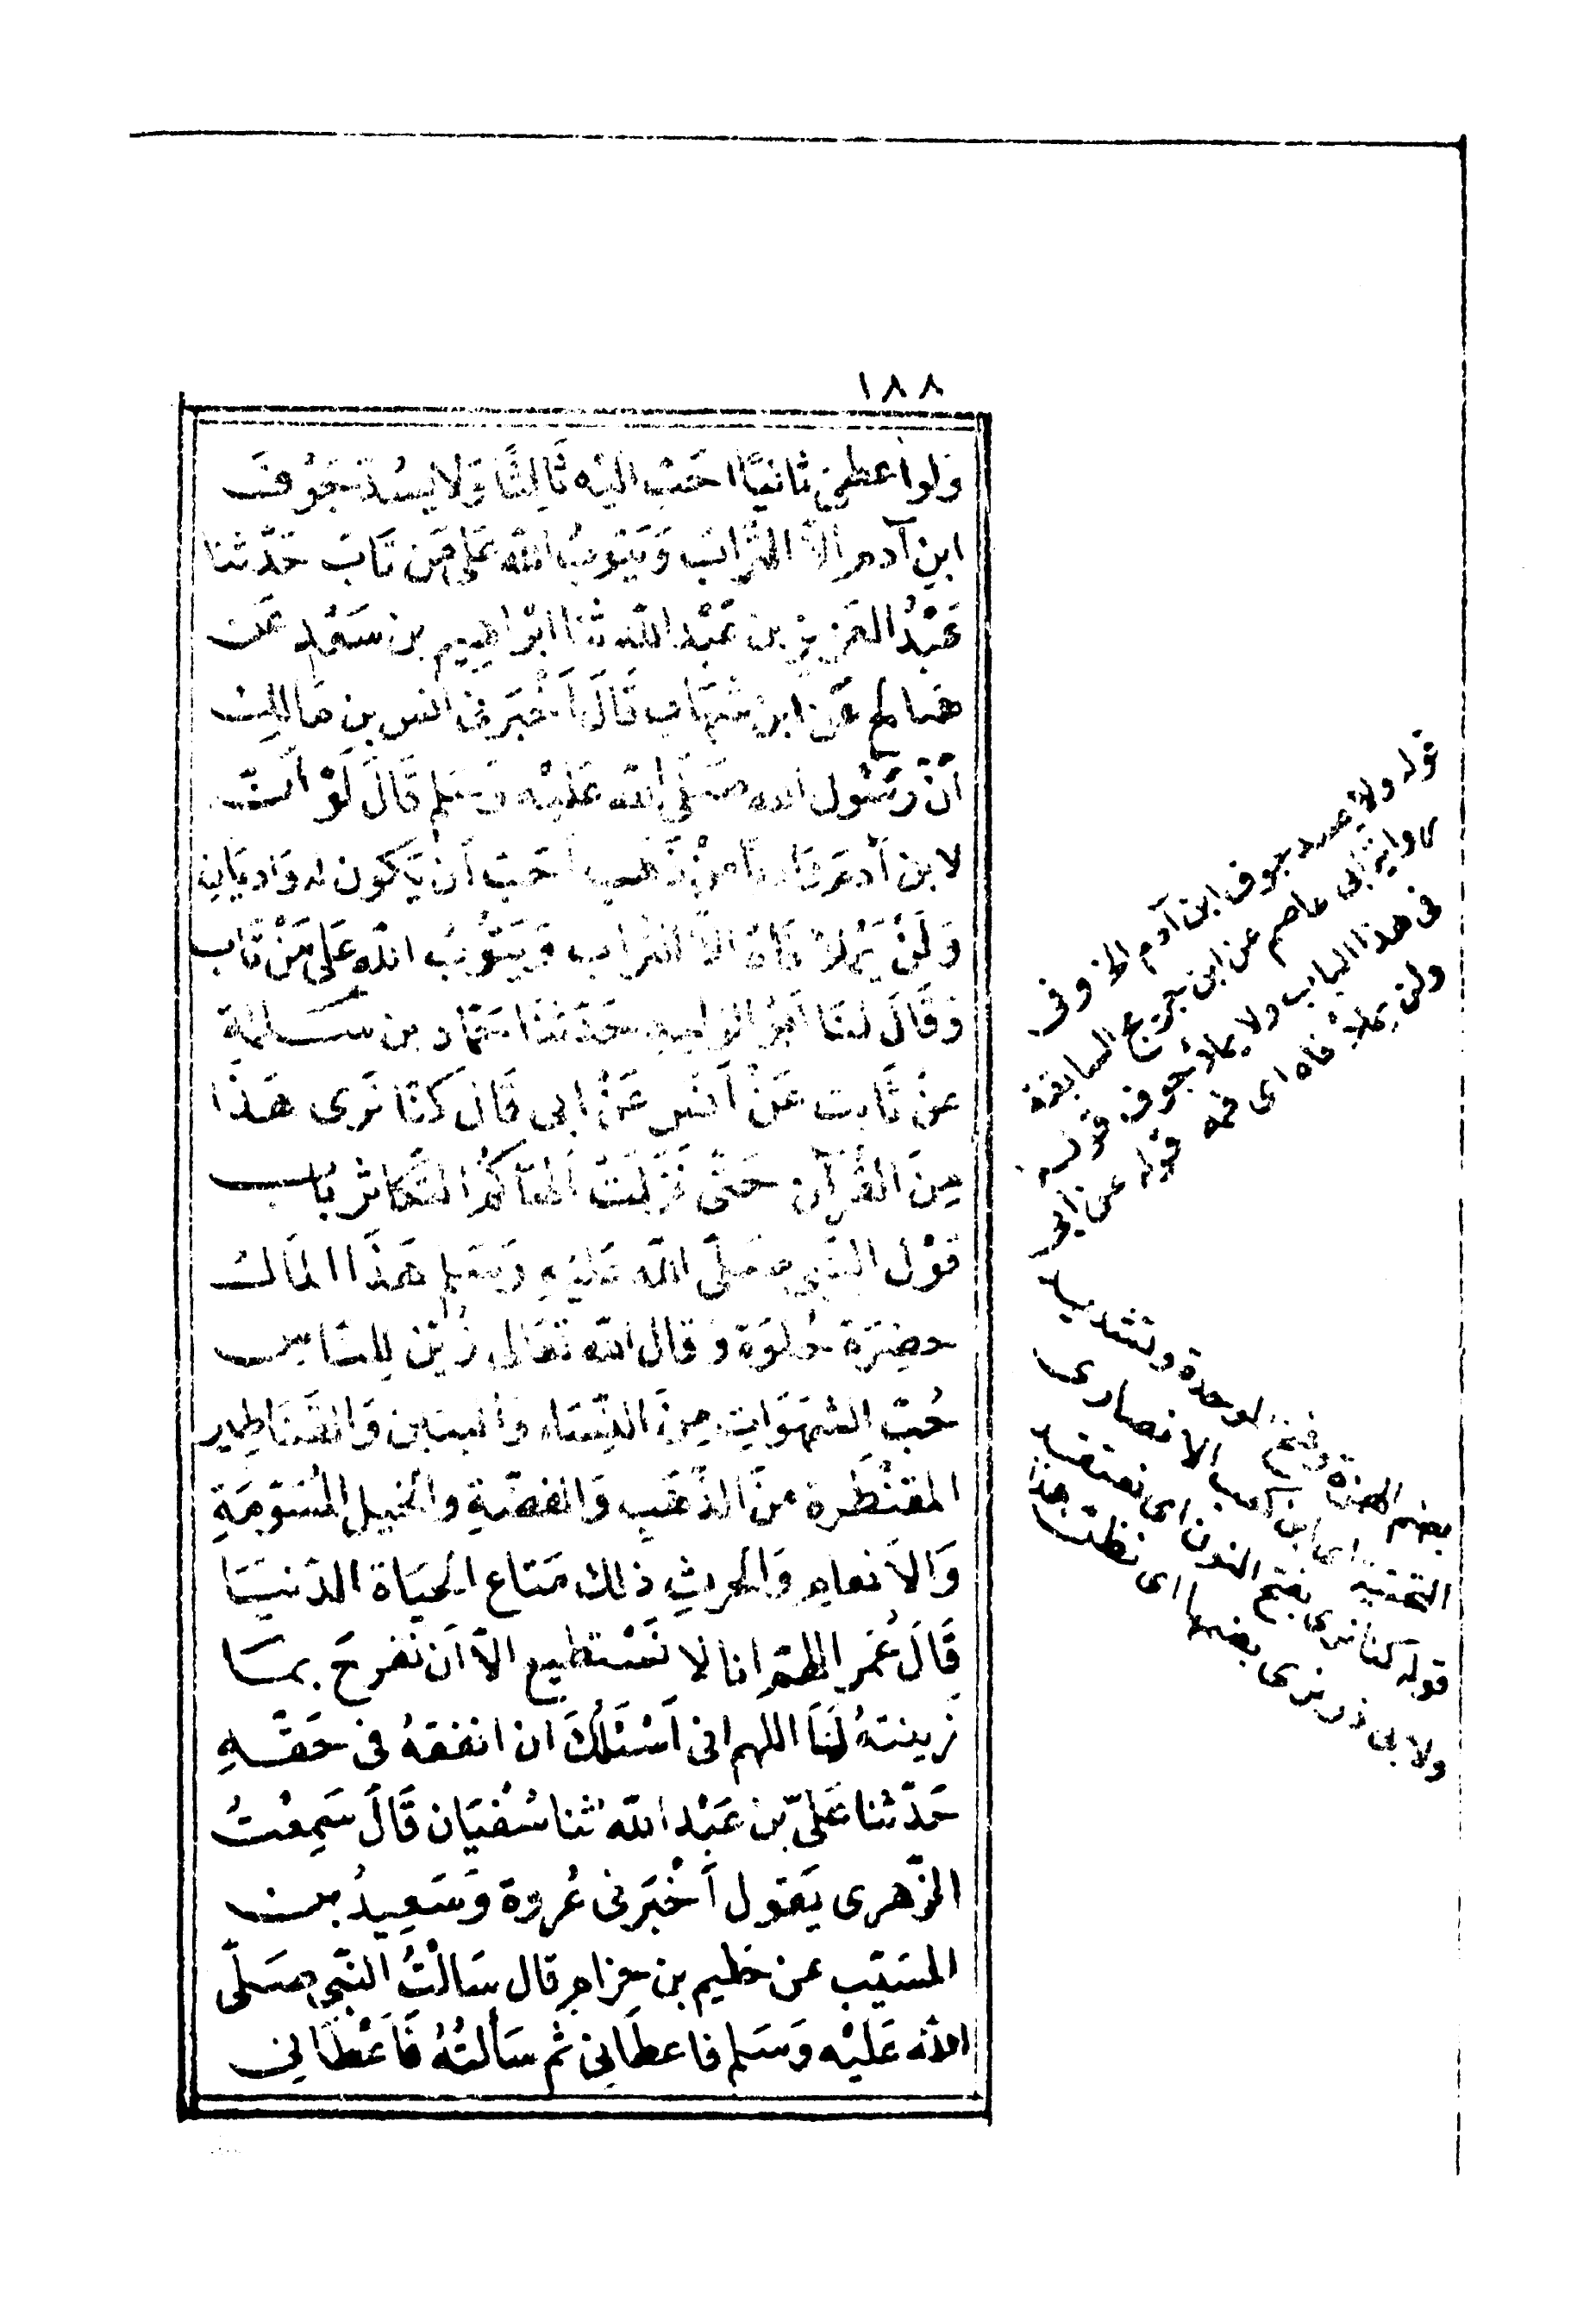 ١٨٨
وَلو أعطى ثانيًا احَبّ اليْه ثَالِثًا وَلا يسُدّ جَوُفَ
ابنِ آدم الاّ التُّرابَ وَيَتوبُ الله عَلى مَن تَابَ حَدّثنا
عَبْدُ العَزيز بن عَبْد الله ثنا ابْراهِيم بن سَعْدٍ عَن
صَالح عَن ابن شهَاب قَالَ أَخْبَرَنى انس بن مَالِك
أنّ رَسُول الله صَلّى الله عَليْه وَسَلم قَالَ لَوْ أنّ
لابن أدمَ وَاديًا مِنْ ذَهَب أحَبّ أن يَكون له وَاديَانِ
وَلَنْ يَمْلأَ فَاهُ الاّ التراب وَيَتُوبُ الله عَلى مَنْ تَاب
وَقَالَ لنَا أبُو الوَليد حَدّثنَا حَمّاد بن سَلمة
عَن ثَابت عَنْ أنَس عَنْ ابى قَال كنّا نَرى هَذَا
مِنَ القُرآن حَتّى نَزَلَتْ ألهَاكُمُ التّكاثر بَاب
قَوْل النّبىِ صَلّى الله عَليْهِ وَسَلم هَذَا المَال
خضِرَة حُلوَة وَقال الله تعَالى زُيّن لِلنّاس
حُبّ الشهَوَاتِ مِنَ النِّسَاء وَالبنين وَالقَنَاطِير
المقنْطَرة منَ الذّهَبِ وَالفضّةِ وَالخيل المُسَوّمَةِ
وَالاَنعام وَالحرثِ ذلك مَتاع الحيَاة الدّنيَا
قَالَ عُمَر اللهمّ انا لا نَسْتطيع الاّ أن نَفرحَ بمَا
زَينتهُ لنَا اللهم انى أَسْئَلُكَ ان انفقهُ فى حَقّهِ
حَدّثنا عَلىّ بن عَبْد الله ثنا سُفْيَان قَالَ سَمِعْتُ
الزّهرى يَقول أخْبَرنى عُروة وَسَعِيدُ بن
المسَيّب عن حكيم بن حزام قال سَالْتُ النّبىّ صَلّى
الله عَليْه وَسَلم فاعطَانِى ثم سَألتُهُ فَاَعْطَانِى
قوله ولا يسد جوف ابن آدم الخ وفى
رواية أبى عاصم عن ابن جريج السابقة
فى هذا الباب ولا يملأ جوف قوله
ولن يملأ فاه اى فمه قوله عن أبى
بضم الهمزة وفتح الموحدة وتشديد
التحتية اى ابن كعب الانصارى
قوله كنا نرى بفتح النون اى نعتقد
ولابى ذر نرى بضمها اى نظن هذا